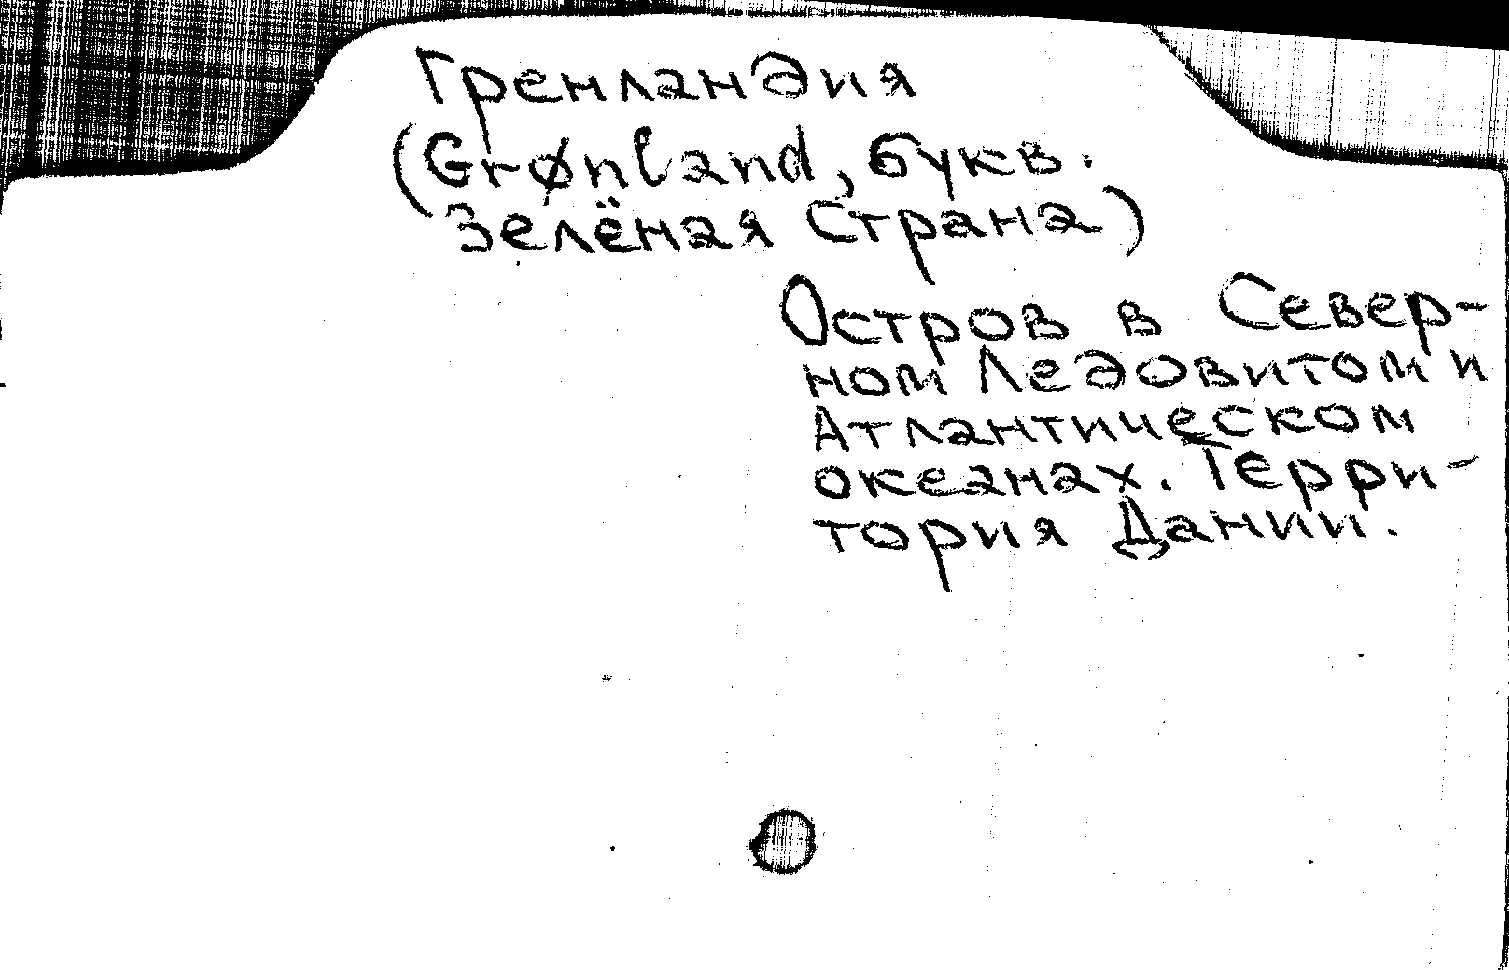 Гренландия
(Grønland, букв.
Зелёная Страна)
Остров в Север-
ном Ледовитом и
Атлантическом
океанах. Терри-
тория Дании.